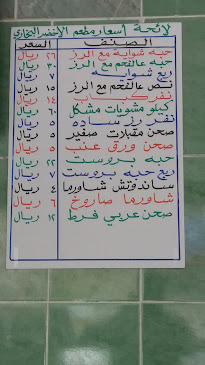 لائحة أسعار مطعم الأخضر البخاري
الصنف السعر
حبه شوايه مع الرز ٢٦ ريال
حبه عالفحم مع الرز ٣٠ ريال
ربع شوايه ٧ ريال
نص عالفحم مع الرز ١٥ ريال
نفر كباب ١٤ ريال
كيلو مشويات مشكل ٦٠ ريال
نفر رز ساده ٥ ريال
صحن مقبلات صغير ٥ ريال
صحن ورق عنب ٥ ريال
حبه بروست ٢٢ ريال
ربع حبه بروست ٧ ريال
ساندوتش شاورما ٤ ريال
شاورما صاروخ ٦ ريال
صحن عربي فرط ١٢ ريال